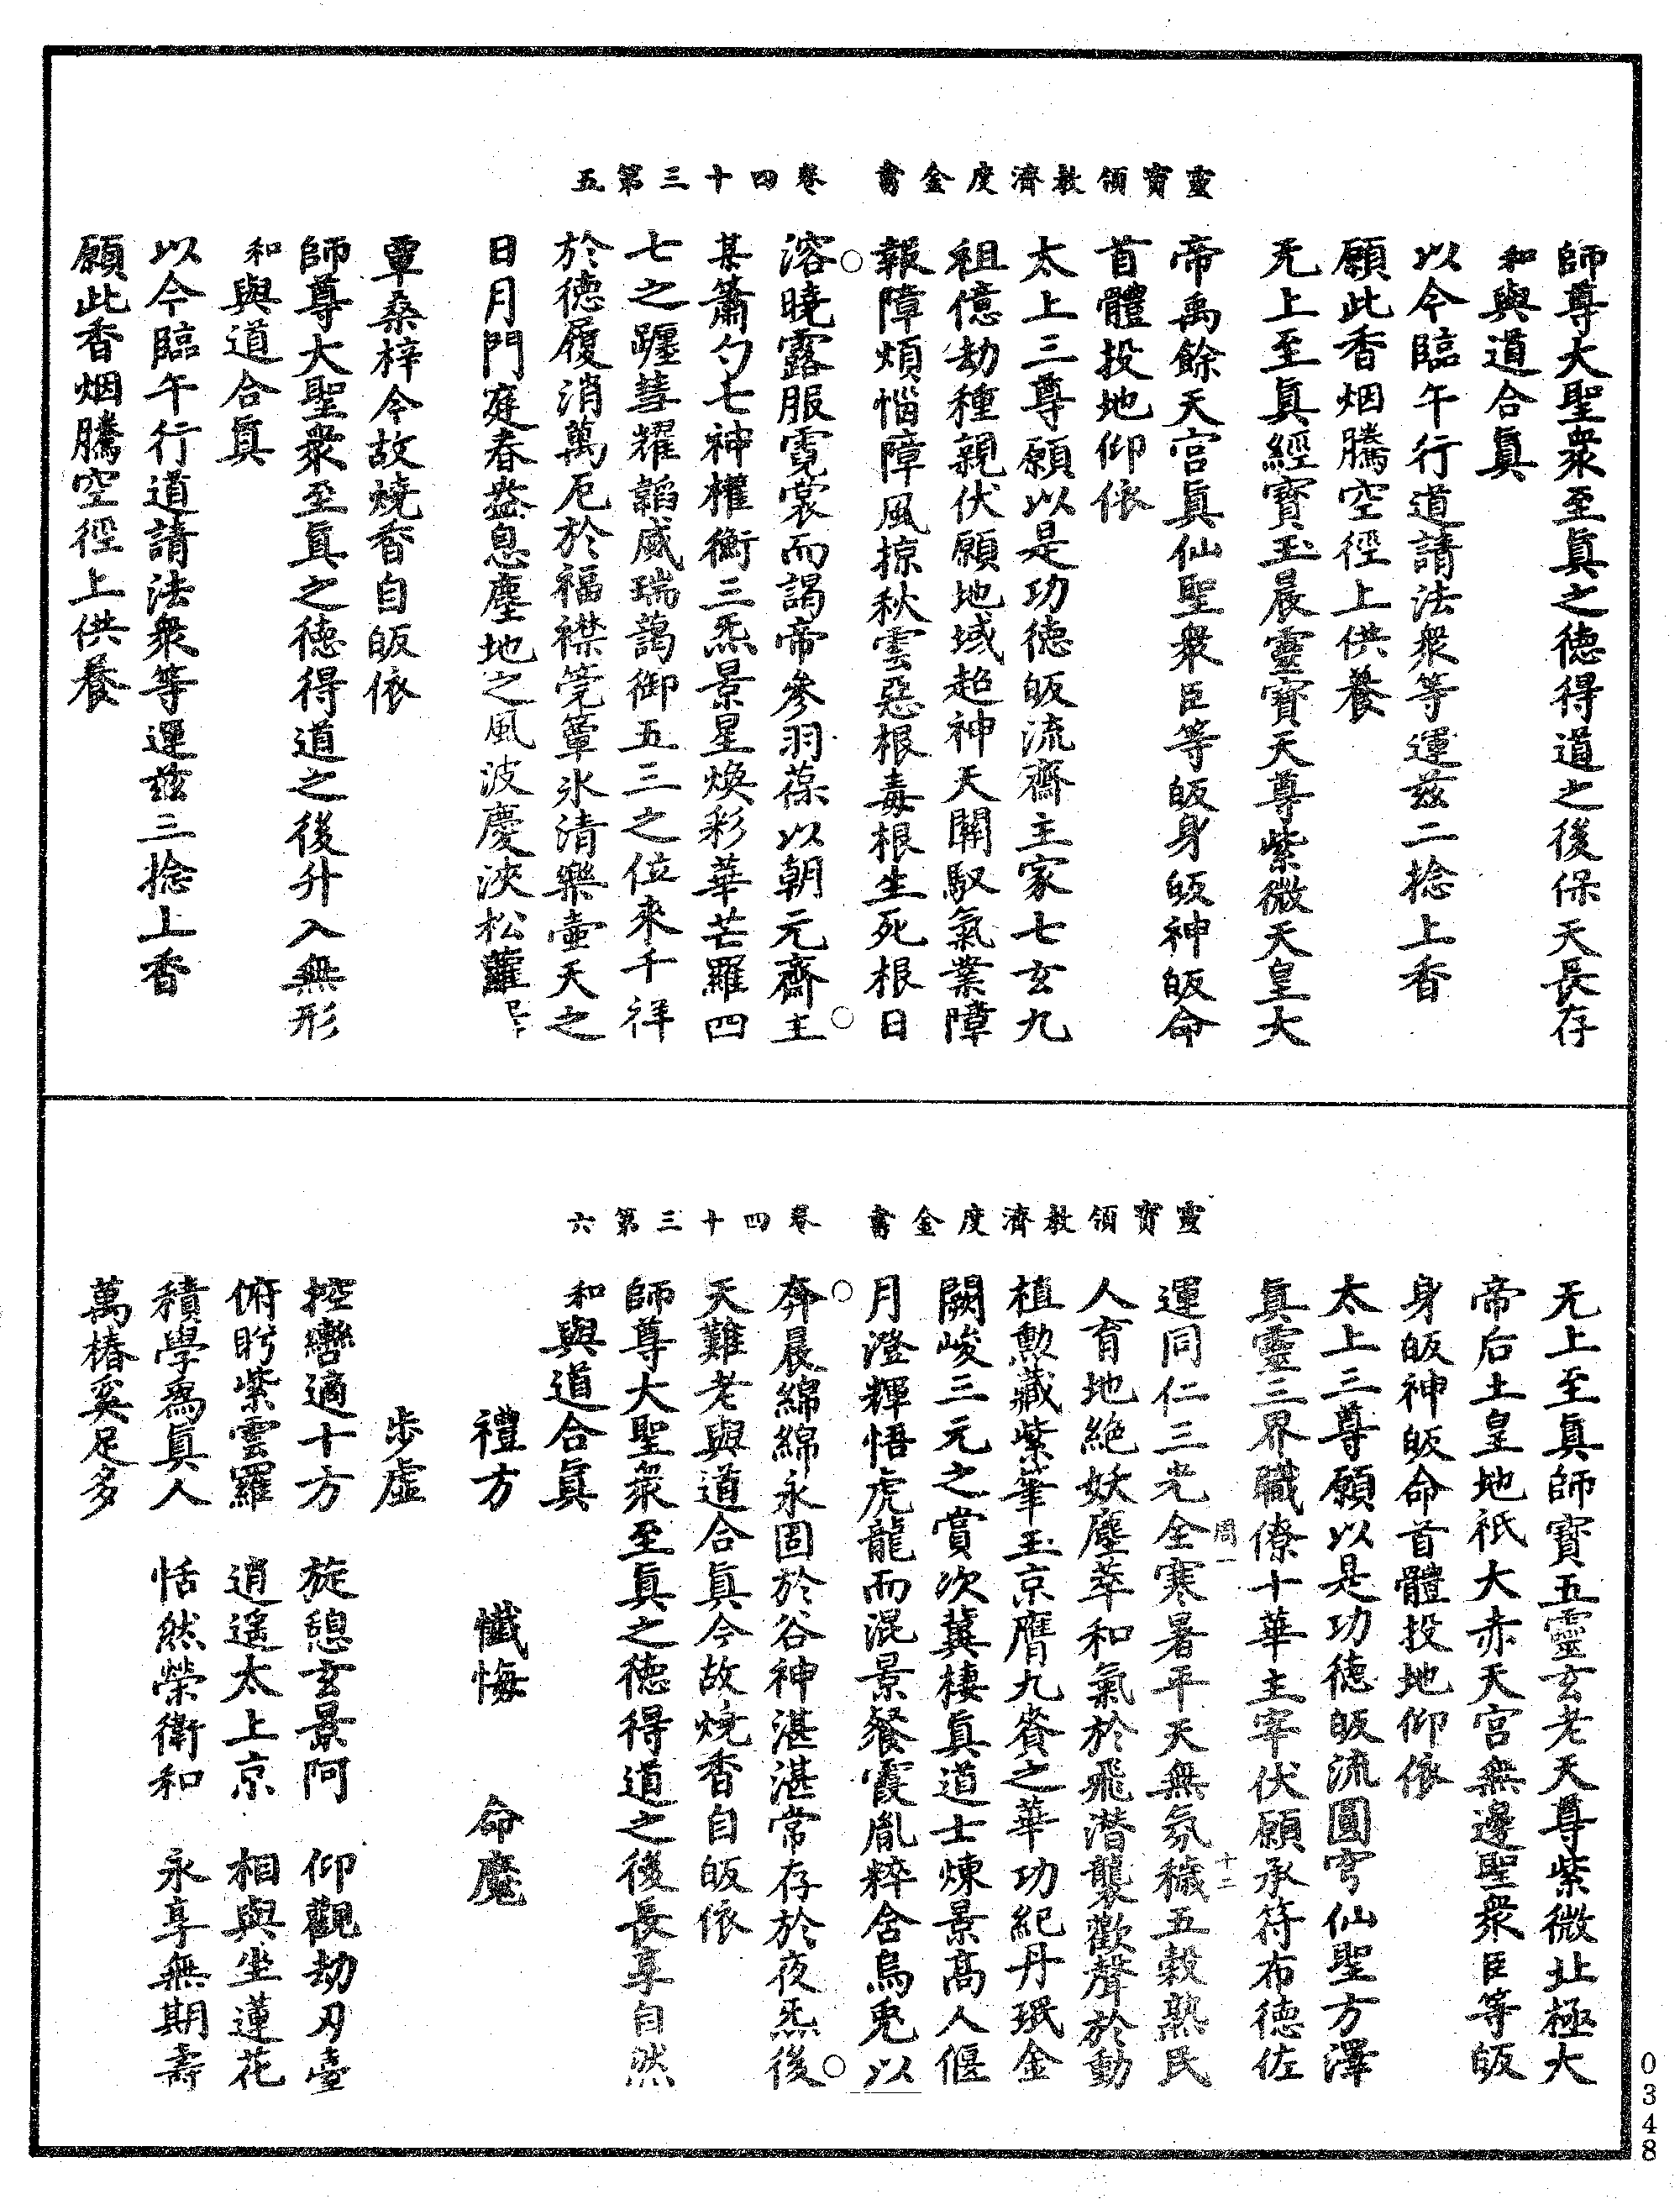 靈寶領教濟度金書　卷四十三第五
師尊大聖衆至眞之德得道之後保天長存
和與道合眞
以今臨午行道請法衆等運兹二捻上香
願此香烟騰空徑上供養
无上至眞經寶玉晨靈寶天尊紫微天皇大
帝禹餘天宫眞仙聖衆臣等皈身皈神皈命
首體投地仰依
太上三尊願以是功德皈流齋主家七玄九
祖億劫種親伏願地域超神天關馭氣業障
報障煩惱障風掠秋雲惡根毒根生死根日
溶曉露服霓裳而謁帝參羽葆以朝元齋主
某簫勺七神權衡三炁景星煥彩華芒羅四
七之躔彗耀韜威瑞藹御五三之位來千祥
於德履消萬厄於福襟筦簟氷清樂壷天之
日月門庭春盎息塵地之風波慶浹松蘿
覃桑梓今故燒香自皈依
師尊大聖衆至眞之德得道之後升入無形
和與道合眞
以今臨午行道請法衆等運兹三捻上香
願此香烟騰空徑上供養
靈寶領教濟度金書　卷四十三第六
无上至眞師寶五靈玄老天尊紫微北極大
帝后土皇地祇大赤天宫無邊聖衆臣等皈
身皈神皈命首體投地仰依
太上三尊願以是功德皈流圓穹仙聖方澤
眞靈三界職僚十華主宰伏願承符布德佐
運同仁三光全寒暑平天無氛穢五穀熟民
人育地絶妖塵萃和氣於飛潛襲歡聲於動
植勲藏紫筆玉京膺九賚之華功紀丹珉金
闕峻三元之賞次冀棲眞道士煉景高人偃
月澄輝悟虎龍而混景餐霞胤粹舍烏兎以
奔晨綿綿永固於谷神湛湛常存於夜炁後
天難老與道合眞今故燒香自皈依
師尊大聖衆至眞之德得道之後長享自然
和與道合眞
禮方　懺悔　命魔
步虚
控轡適十方　旋憩玄景阿　仰觀劫刃臺
俯眄紫雲羅　逍遥太上京　相與坐蓮花
積學爲眞人　恬然榮衛和　永享無期壽
萬椿奚足多
十二
0348